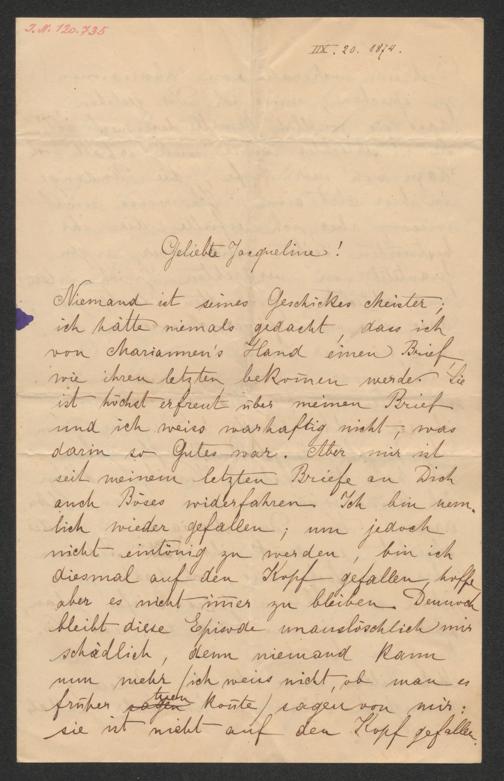 J.N. 120.735
IIX. 20. 1874.
Geliebte Jacqueline!
Niemand ist seines Geschickes Meister;
ich hätte niemals gedacht, dass ich
von Mariannen's Hand einen Brief,
wie ihren letzten bekom̅en werde. Sie
ist höchst erfreut über meinen Brief
und ich weiss warhaftig nicht, was
darin so Gutes war. Aber mir ist
seit meinem letzten Briefe an Dich
auch Böses widerfahren. Ich bin nem-
lich wieder gefallen; um jedoch
nicht eintönig zu werden, bin ich
diesmal auf den Kopf gefallen, hoffe
aber es nicht im̅er zu bleiben. Dennoch
bleibt diese Episode unauslöschlich mir
schädlich, denn niemand kann
nun mehr /ich weiss nicht, ob man es
früher kon̅te/ sagen von mir:
sie ist nicht auf den Kopf gefallen.